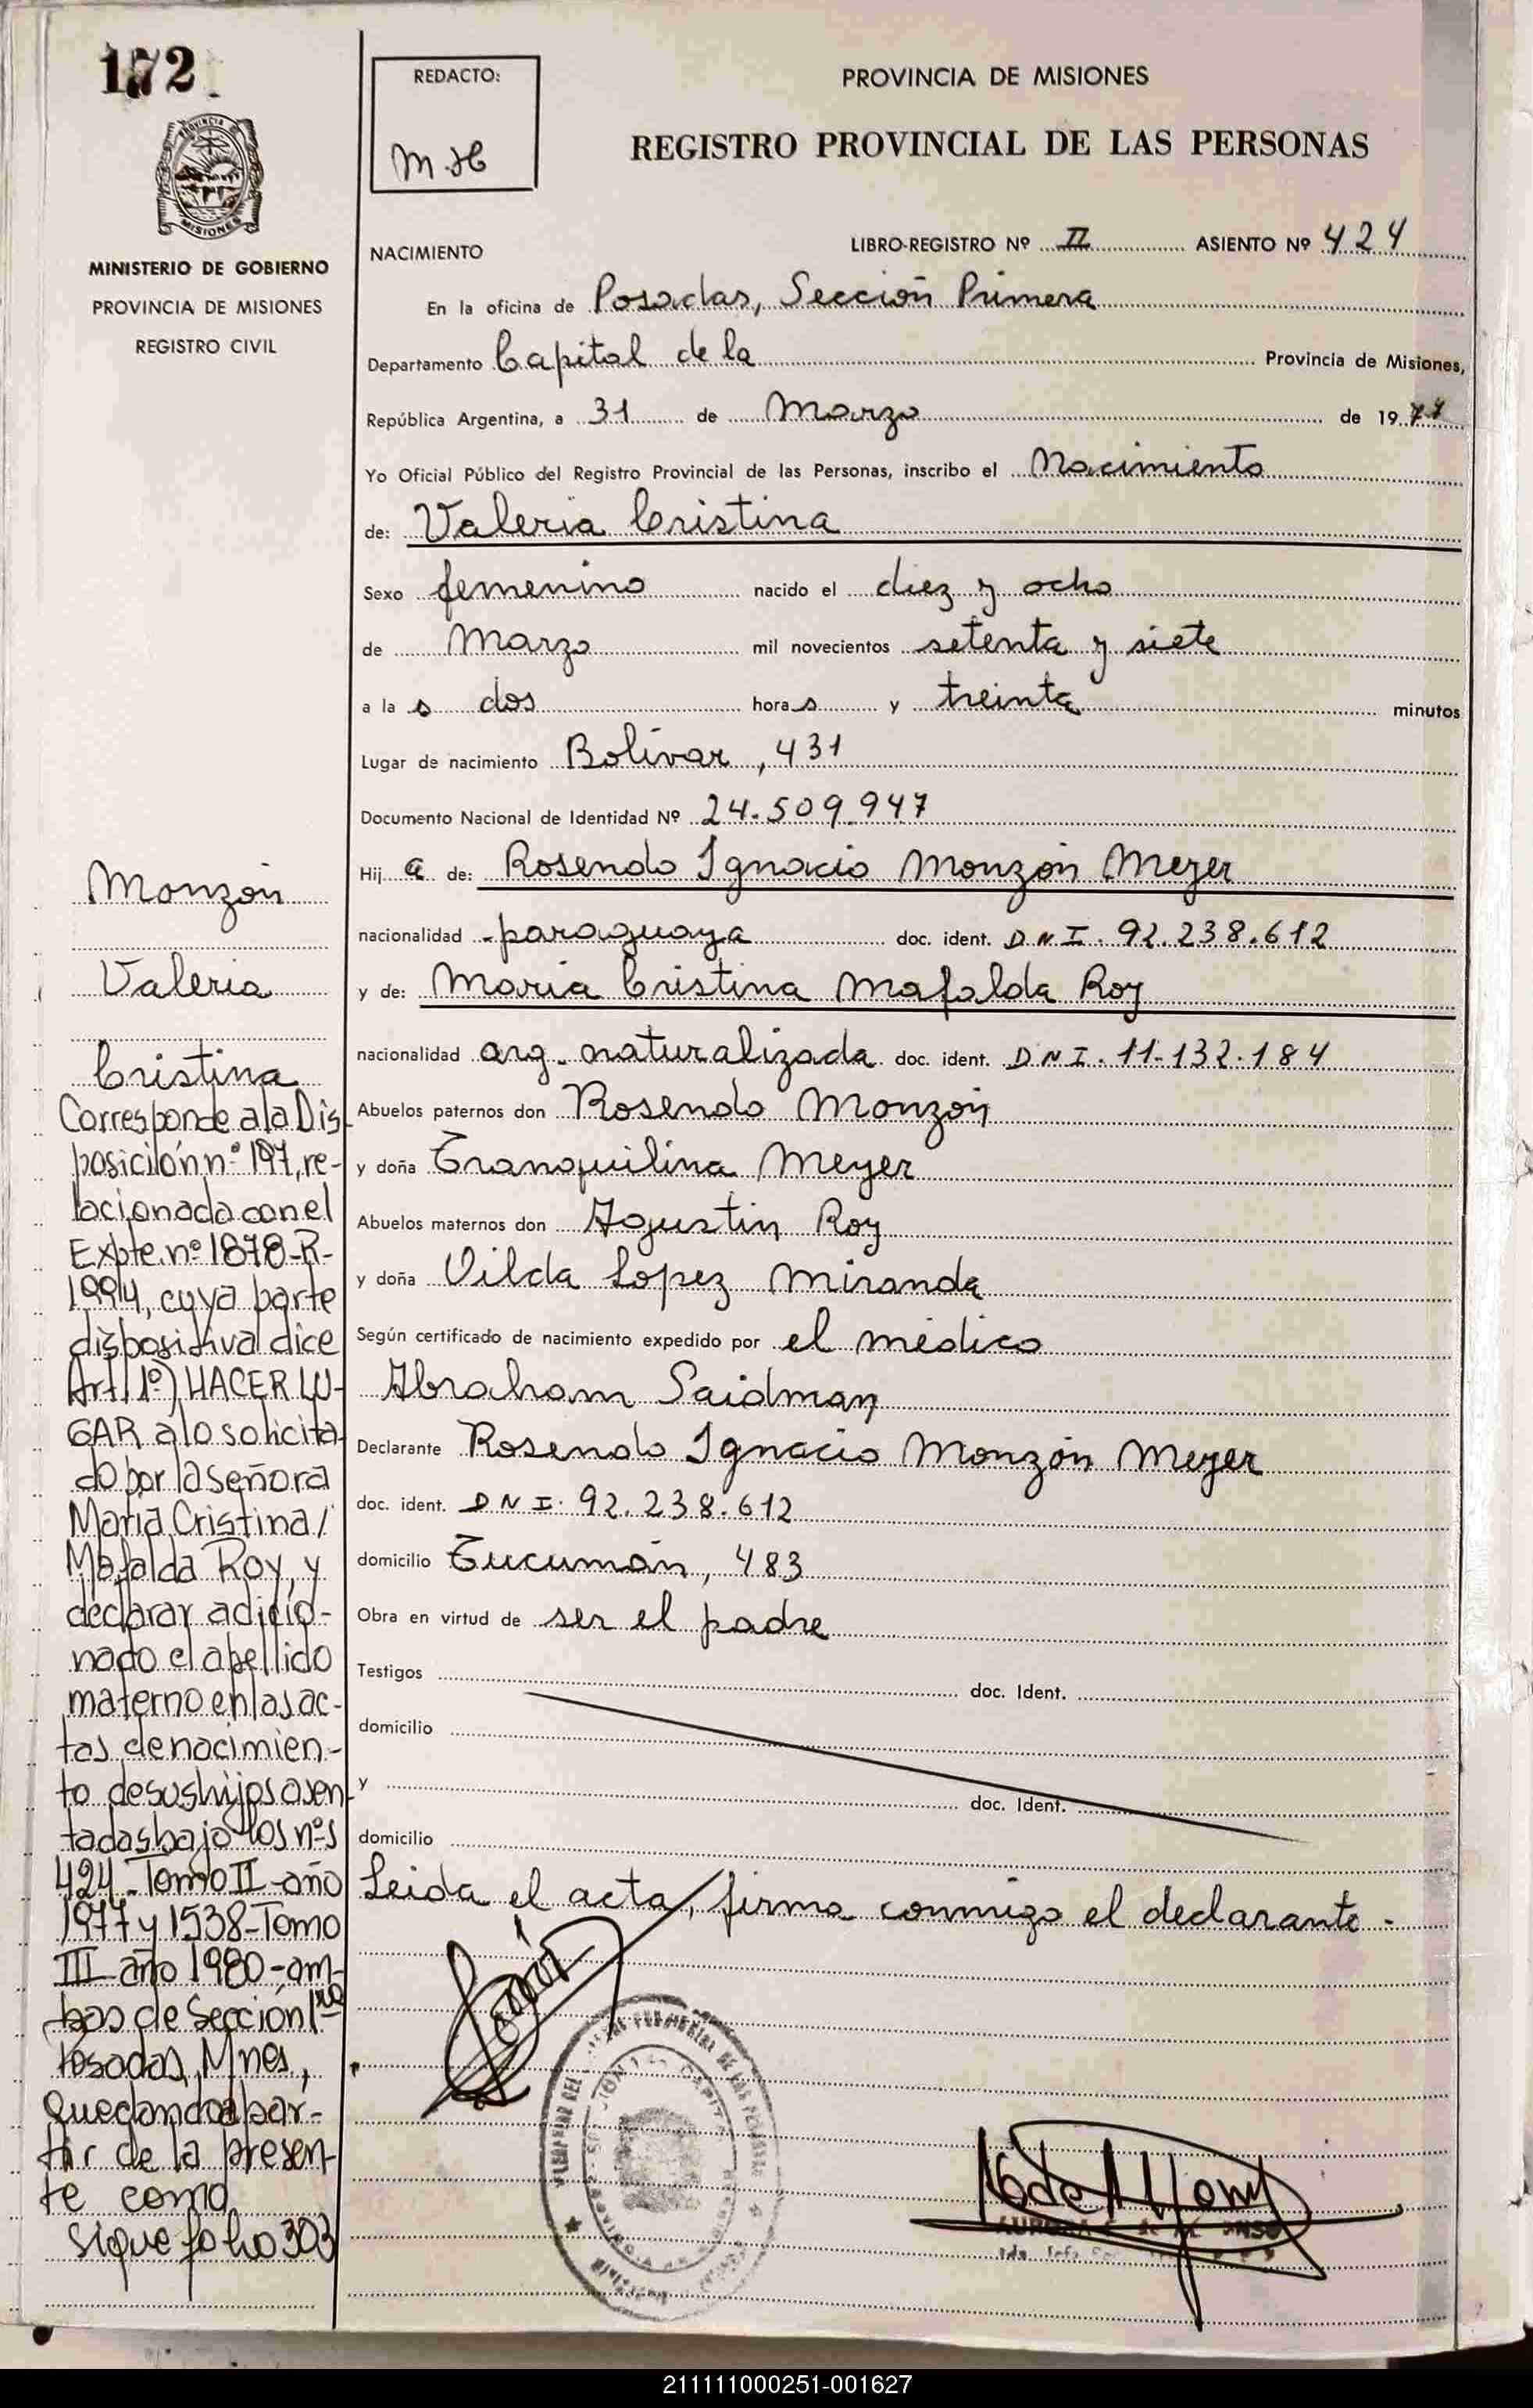 172
PROVINCIA DE
MISIONES
MINISTERIO DE GOBIERNO
PROVINCIA DE MISIONES
REGISTRO CIVIL
REDACTO:
PROVINCIA DE MISIONES
REGISTRO PROVINCIAL DE LAS PERSONAS
NACIMIENTO
LIBRO-REGISTRO Nº II ASIENTO Nº 424
En la oficina de Posadas, Sección Primera
Departamento Capital de la Provincia de Misiones,
República Argentina, a 31 de Marzo de 1977
Yo Oficial Público del Registro Provincial de las Personas, inscribo el Nacimiento
de: Valeria Cristina
Sexo femenino nacido el diez y ocho
de Marzo mil novecientos setenta y siete
a la s dos hora s y treinta minutos
Lugar de nacimiento Bolívar, 431
Documento Nacional de Identidad Nº 24.509.947
Hij a de: Rosendo Ignacio Monzón Meyer
nacionalidad paraguaya doc. ident. D N I. 92.238.612
y de: Maria Cristina Mafalda Roy
nacionalidad arg. naturalizada doc. ident. D N I. 11.132.184
Abuelos paternos don Rosendo Monzón
y doña Tranquilina Meyer
Abuelos maternos don Agustin Roy
y doña Vilda Lopez Miranda
Según certificado de nacimiento expedido por el médico
Abraham Saidman
Declarante Rosendo Ignacio Monzón Meyer
doc. ident. D N I. 92.238.612
domicilio Tucumán, 483
Obra en virtud de ser el padre
Testigos doc. Ident.
domicilio
y doc. Ident.
domicilio
Leida el acta, firma conmigo el declarante.
Monzón
Valeria
Cristina
Corresponde a la Dis-
posición nº 197, re-
lacionada con el
Expte. nº 1878-R-
1994, cuya parte
dispositiva dice
Art. 1º) HACER LU-
GAR a lo solicita-
do por la señora
Maria Cristina/
Mafalda Roy, y
declarar adicio-
nado el apellido
materno en las ac-
tas de nacimien-
to de sus hijos asen-
tadas bajo los nºs
424-Tomo II-año
1977 y 1538-Tomo
III-año 1980-am-
bas de Sección 1ra
Posadas, Mnes,
quedando a par-
tir de la presen-
te como
sigue folio 303
211111000251-001627